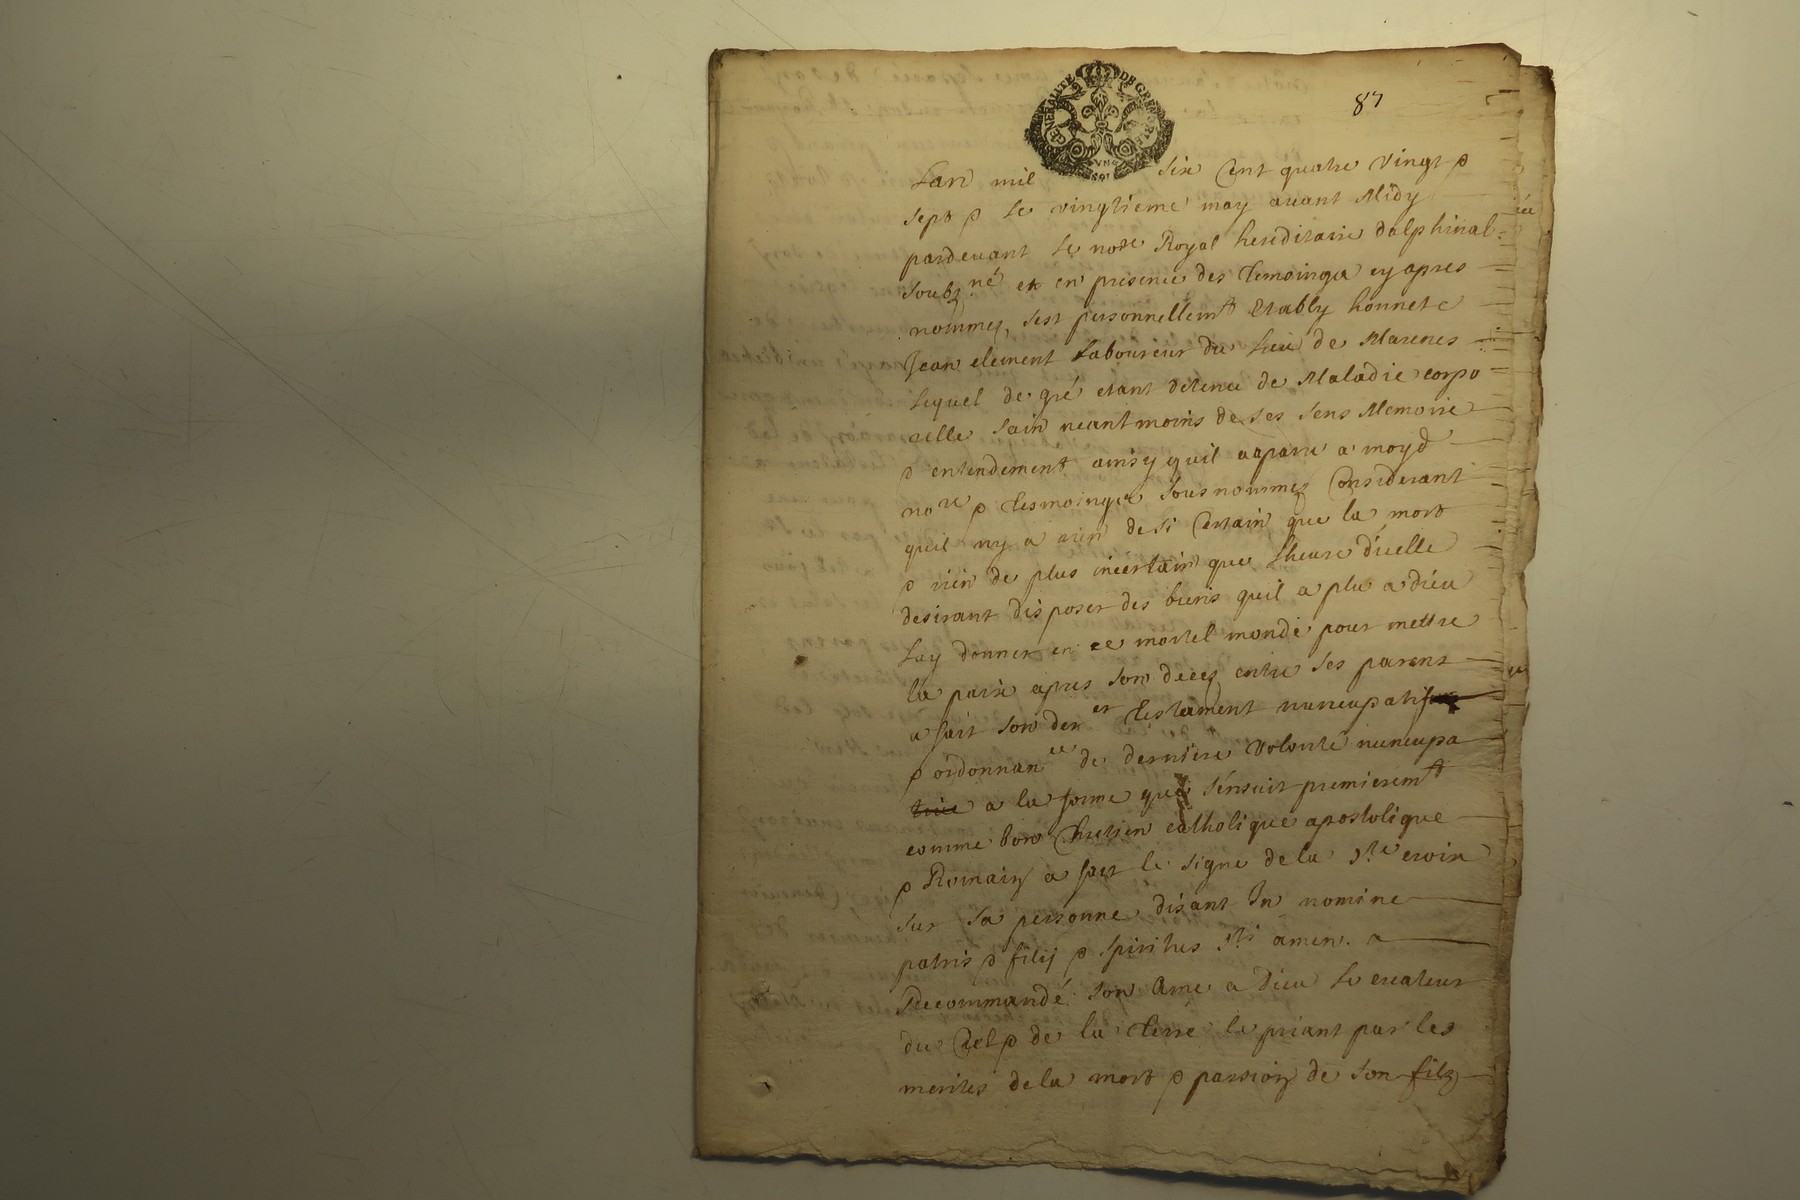 87
GENERALITE DE GRENOBLE
VN SOL
Lan mil six Cent quatre vingt &
sept & le vingtieme may auant Midy
pardeuant le nore Royal hereditaire dalphinal
soubzné et en presence des temoingz cy apres
nommez, sest personnellemt Etably honnete
Jean clement Laboureur du Lieu de Marenes
Lequel de gré etant detenu de Maladie corpo
relle sain neantmoins de ses sens Memoire
& entendement ainsy quil a aparu a moyd
nore & tesmoingz sousnommez Considerant
quil ny a rien de si Certain que la mort
& rien de plus incertain que Lheure d'icelle
desirant disposer des biens quil a plu a dieu
Luy donner en ce mortel monde pour mettre
la paix apres son decez entre ses parens
a fait son dener testament nuncupatif
& ordonnance de derniere volonté nuncupa
tiue a la forme que sensuit premieremt
comme bon Chretien catholique apostolique
& Romain a fait le signe de la Ste croix
sur sa personne disant In nomine
patris & filij & spiritus Sti amen. a
Recommandé son Ame a Dieu Le createur
du Ciel & de la terre le priant par les
merites de la mort & passion de son filz